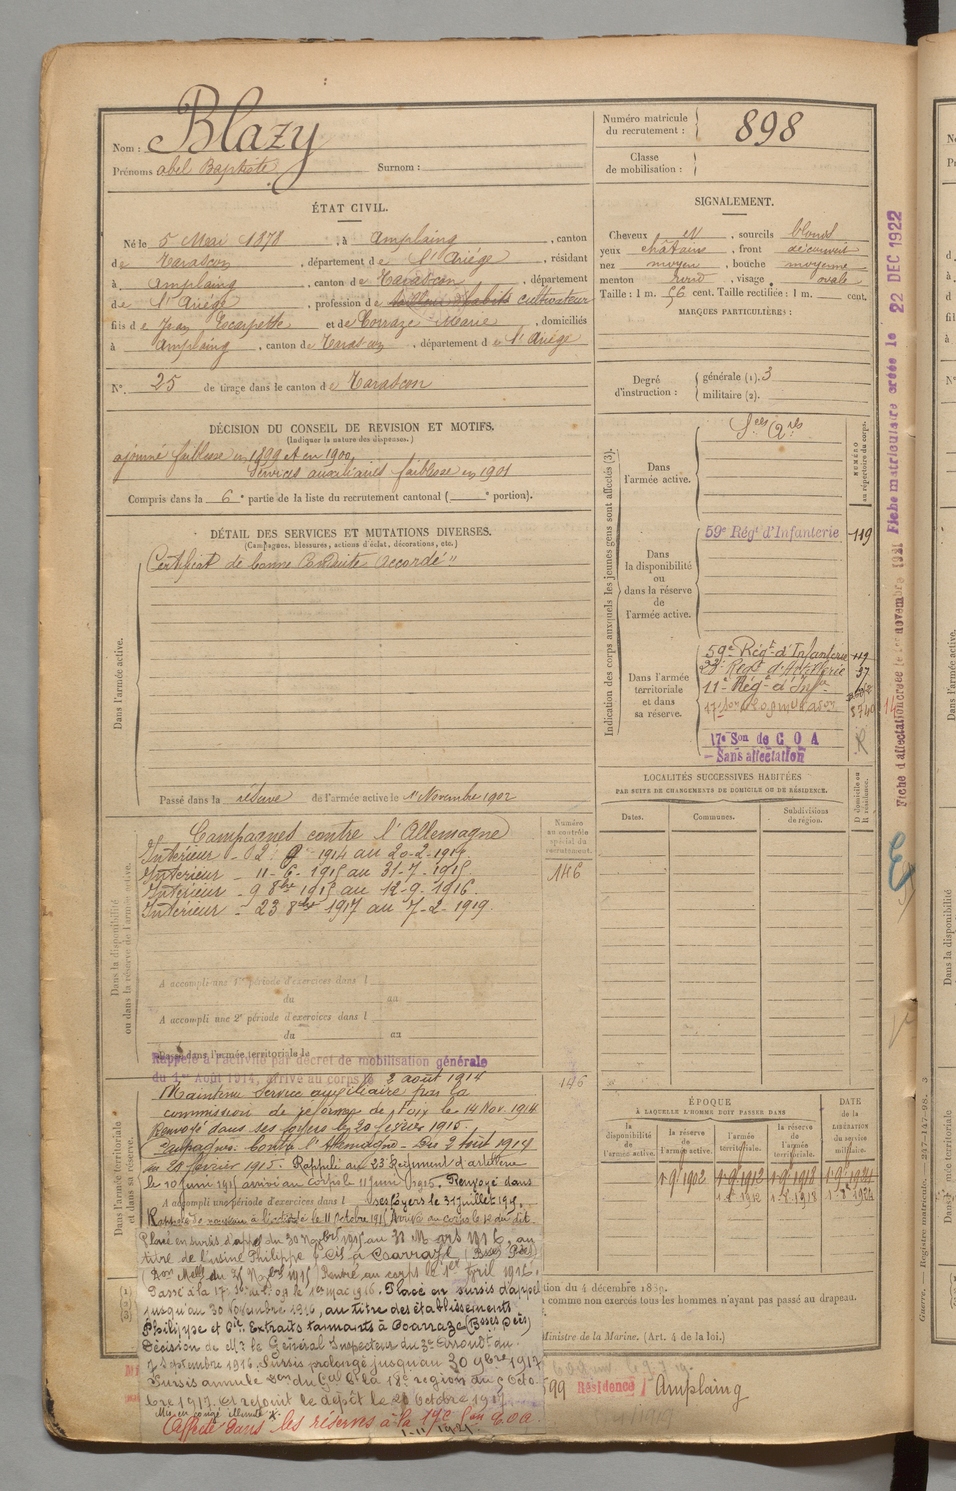 Nom : Blazy
Prénoms abel Baptiste Surnom :
Numéro matricule du recrutement : 898
Classe de mobilisation :
ÉTAT CIVIL.
Né le 5 Mai 1878, à Amplaing, canton
de Tarascon, département de l'Ariège, résidant
à Amplaing, canton de Tarascon, département
de l'Ariège, profession de cultivateur
fils de Jean Escarpette et de Corraze Marie, domiciliés
à Amplaing, canton de Tarascon, département de l'Ariège
N°. 25 de tirage dans le canton de Tarascon
SIGNALEMENT.
Cheveux et, sourcils blonds
yeux châtains, front découvert
nez moyen, bouche moyenne
menton rond, visage ovale
Taille : 1 m. 56 cent. Taille rectifiée : 1 m. cent.
MARQUES PARTICULIÈRES :
Degré d'instruction : générale (1). 3
militaire (2).
DÉCISION DU CONSEIL DE REVISION ET MOTIFS.
(Indiquer la nature des dispenses.)
ajourné faiblesse en 1899 et en 1900
Services auxiliaires faiblesse en 1901
Compris dans la 6e partie de la liste du recrutement cantonal ( e portion).
DÉTAIL DES SERVICES ET MUTATIONS DIVERSES.
(Campagnes, blessures, actions d'éclat, décorations, etc.)
Dans l'armée active.
Certificat de bonne Conduite "accordé"
Passé dans la réserve de l'armée active le 1er Novembre 1902
Indication des corps auxquels les jeunes gens sont affectés (3).
NUMÉRO au répertoire du corps.
Dans l'armée active.
Dans la disponibilité ou dans la réserve de l'armée active.
59e Régt d'Infanterie 119
Dans l'armée territoriale et dans sa réserve.
59e Régt d'Infanterie 119
23e Régt d'Artillerie 37
11e Régt d'Infie
17e Son de C O A
— Sans affectation
LOCALITÉS SUCCESSIVES HABITÉES
PAR SUITE DE CHANGEMENTS DE DOMICILE OU DE RÉSIDENCE.
Dates. Communes. Subdivisions de région. D domicile ou R résidence.
Dans la disponibilité ou dans la réserve de l'armée active.
Numéro au contrôle spécial du recrutement.
146
Campagnes contre l'Allemagne
Intérieur - 2 - 1914 au 20-2-1915
Intérieur - 11-6-1915 au 31-7-1915
Intérieur - 9 8bre 1915 au 12-9-1916
Intérieur - 23 8bre 1917 au 7-2-1919
A accompli une 1re période d'exercices dans l
du au
A accompli une 2e période d'exercices dans l
du au
Passé dans l'armée territoriale le
Rappelé à l'activité par décret de mobilisation générale
du 1er Août 1914, arrivé au corps le 3 août 1914
146
Dans l'armée territoriale et dans sa réserve.
Maintenu Service auxiliaire par la
commission de réforme de Foix le 14 Nov. 1914
Renvoyé dans ses foyers le 20 février 1915.
Campagnes. Contre l'Allemagne - Du 3 août 1914
au 20 février 1915. Rappelé au 23e Régiment d'artillerie
le 10 Juin 1915 arrivé au corps le 11 Juin 1915. Renvoyé dans
A accompli une période d'exercices dans l ses foyers le 31 juillet 1915.
Rappelé de nouveau à l'activité le 11 Octobre 1915 Arrivé au corps le dit.
Placé en sursis d'appel du 30 Novbre 1915 au 31 Mars 1916, au
titre de l'usine Philippe & Cie à Coarraze (Basses Pées)
Rentré au corps le 1er Avril 1916.
Passé à la 17e Son de C.O.A. le 1er Mai 1916. Placé en sursis d'appel
jusqu'au 30 Novembre 1916, au titre des établissements
Philippe et Cie. Extraits tannants à Coarraze (Bsses Pées)
Décision de Mr le Général Inspecteur du 3e Arrondt du
7 Septembre 1916. Sursis prolongé jusqu'au 30 9bre 1917
Sursis annulé Don du Gal Ct la 18e région du 9 Octo-
bre 1917. et rejoint le dépôt le 20 Octobre 1917.
Mis en congé illimité
Affecté dans les réserves à la 17e Son C.O.A.
1-11-1921
ÉPOQUE
À LAQUELLE L'HOMME DOIT PASSER DANS
la disponibilité de l'armée active. la réserve de l'armée active. l'armée territoriale. la réserve de l'armée territoriale. DATE de la LIBÉRATION du service militaire.
1-9-1902 1-9-1912 1-9-1918 1-9-1924
tion du 4 décembre 1889.
comme non exercés tous les hommes n'ayant pas passé au drapeau.
Ministre de la Marine. (Art. 4 de la loi.)
599 Résidence Amplaing
Fiche matriculaire créée le 22 DEC 1922
Fiche d'affectation créée le 1er novembre 1921
Guerre. — Registre matricule. 247-147-98. 3